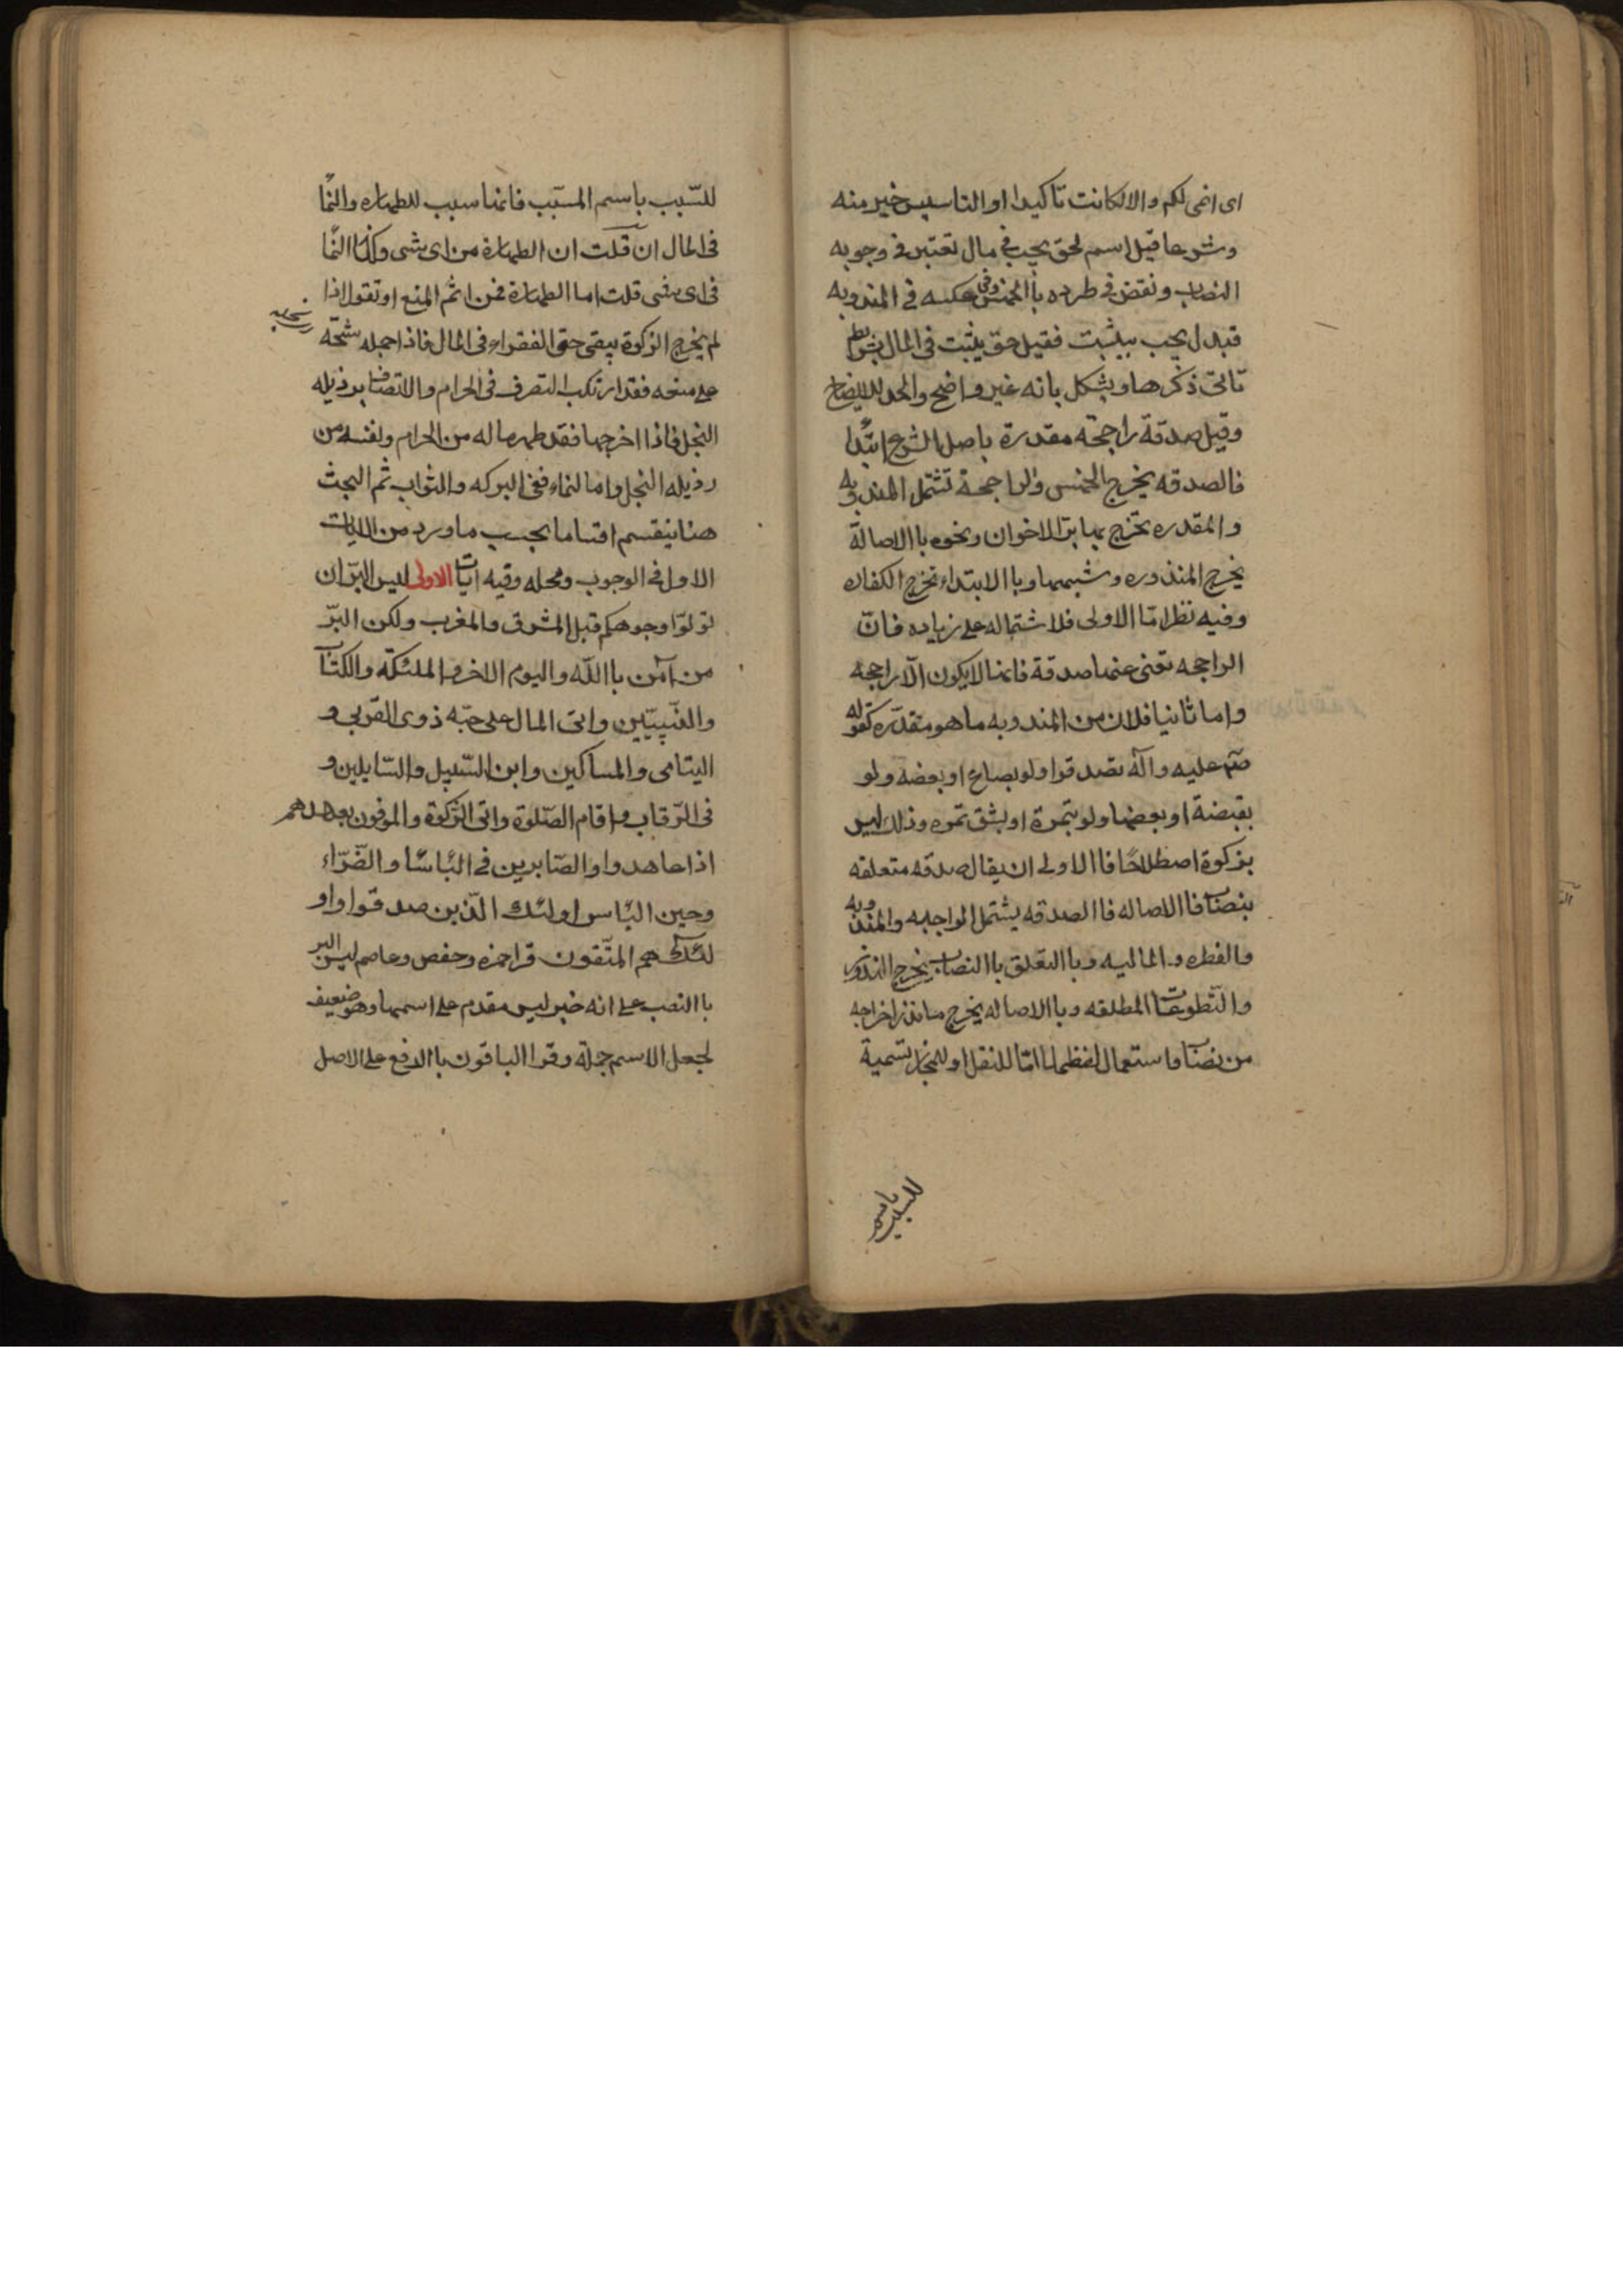 ای انمی لکم والا لکانت تاکیدا او التاسیس خیر منه
وشرعا قیل اسم لحق یجب فی مال تعتبر فی وجوبه
النصاب ونقض فی طرده باالخمس وفی عکسه فی المندوبه
فبدل یجب بیثبت فقیل حق یثبت فی المال بشروط
تاتی ذکرها ویشکل بانه غیر واضح والحد للایضاح
وقیل صدقة راجحة مقدرة باصل الشرع ابتدا
فالصدقه یخرج الخمس والراجحة تشتمل المندوبه
والمقدره تخرج بها بر الاخوان ونحوه باالاصالة
یخرج المنذوره وشبهها وباالابتداء تخرج الکفاره
وفیه نظر امّا الاولی فلاشتماله علی زیاده فانّ
الراجحه تغنی عنها صدقة فانها لایکون الّا راجحه
واما ثانیا فلان من المندوبه ما هو مقدّره کقوله
صم علیه وآله تصدقوا ولو بصاع او بعضه ولو
بقبضة او بعضها ولو بتمرة او بشق تمره وذلك لیس
بزکوة اصطلاحًا فاالاولی ان یقال صدقه متعلقه
بنصاب باالاصاله فاالصدقه یشتمل الواجبه والمندوبه
والفطره والمالیه وباالتعلق باالنصاب یخرج النذور
والتّطوعات المطلقه وباالاصاله یخرج ما نذر اخراجه
من نصاب واستعمال لفظها امّا للنقل او للمجاز تسمیة
للسبب باسم
للسّبب باسم المسبّب فانها سبب للطهاره والنّما
فی المال ان قلت ان الطهارة من ای شی وکذا النّما
فی ای شی قلت اما الطهارة فمن اثم المنع او تقول اذا
لم یخرج الزکوة یبقی حق الفقراء فی المال فاذا حمله شحّه
علی منعه فقد ارتکب التصرف فی الحرام والاتصاف برذیله
البخل فاذا اخرجها فقد طهر ماله من الحرام ونفسه من
رذیله البخل واما لنماء ففی البرکه والثواب ثم البحث
هنا ینقسم اقساما بحسب ما ورد من الایات
الاول فی الوجوب ومحله وفیه آیات الاولی لیس البرّ ان
تولّوا وجوهکم قبل المشرق والمغرب ولکن البرّ
من آمن باالله والیوم الاخر والملئکة والکتاب
والنّبیّین واتی المال علی حبّه ذوی القربی و
الیتامی والمساکین وابن السّبیل والسّایلین و
فی الرّقاب واقام الصّلوة واتی الزّکوة والموفون بعهدهم
اذا عاهدوا والصّابرین فی البأسا والضّرّاء
وحین البأس اولئك الّذین صدقوا واو
لئك هم المتّقون قرا حمزه وحفص وعاصم لیس البر
باالنصب علی انه خبر لیس مقدم علی اسمها وهو ضعیف
لجعل الاسم جملة وقرا الباقون باالرفع علی الاصل